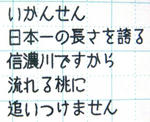 いかんせん
日本一の長さを誇る
信濃川ですから
流れる桃に
追いつけません